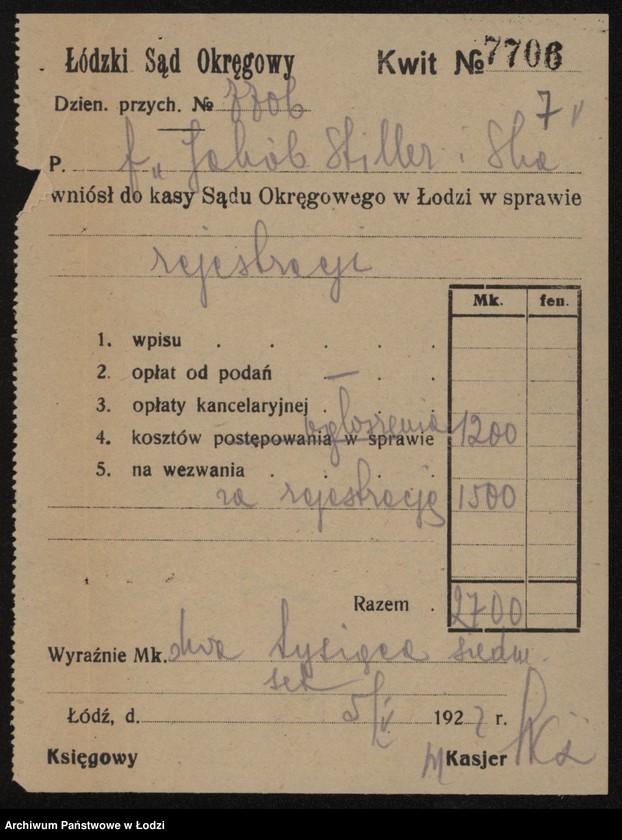 Łódzki Sąd Okręgowy Kwit № 7706
Dzien. przych. № 7706 7
P. f. „Jakób Stiller i Ska
wniósł do kasy Sądu Okręgowego w Łodzi w sprawie
rejestracji
Mk. fen.
1. wpisu . . . . .
2. opłat od podań — . .
3. opłaty kancelaryjnej . . . .
ogłoszenia
4. kosztów postępowania w sprawie 1200
5. na wezwania . . . . .
za rejestrację 1500
Razem . 2700
Wyraźnie Mk. dwa tysiące siedm
set
Łódź, d. 5/V 1922 r.
Księgowy Kasjer
Archiwum Państwowe w Łodzi